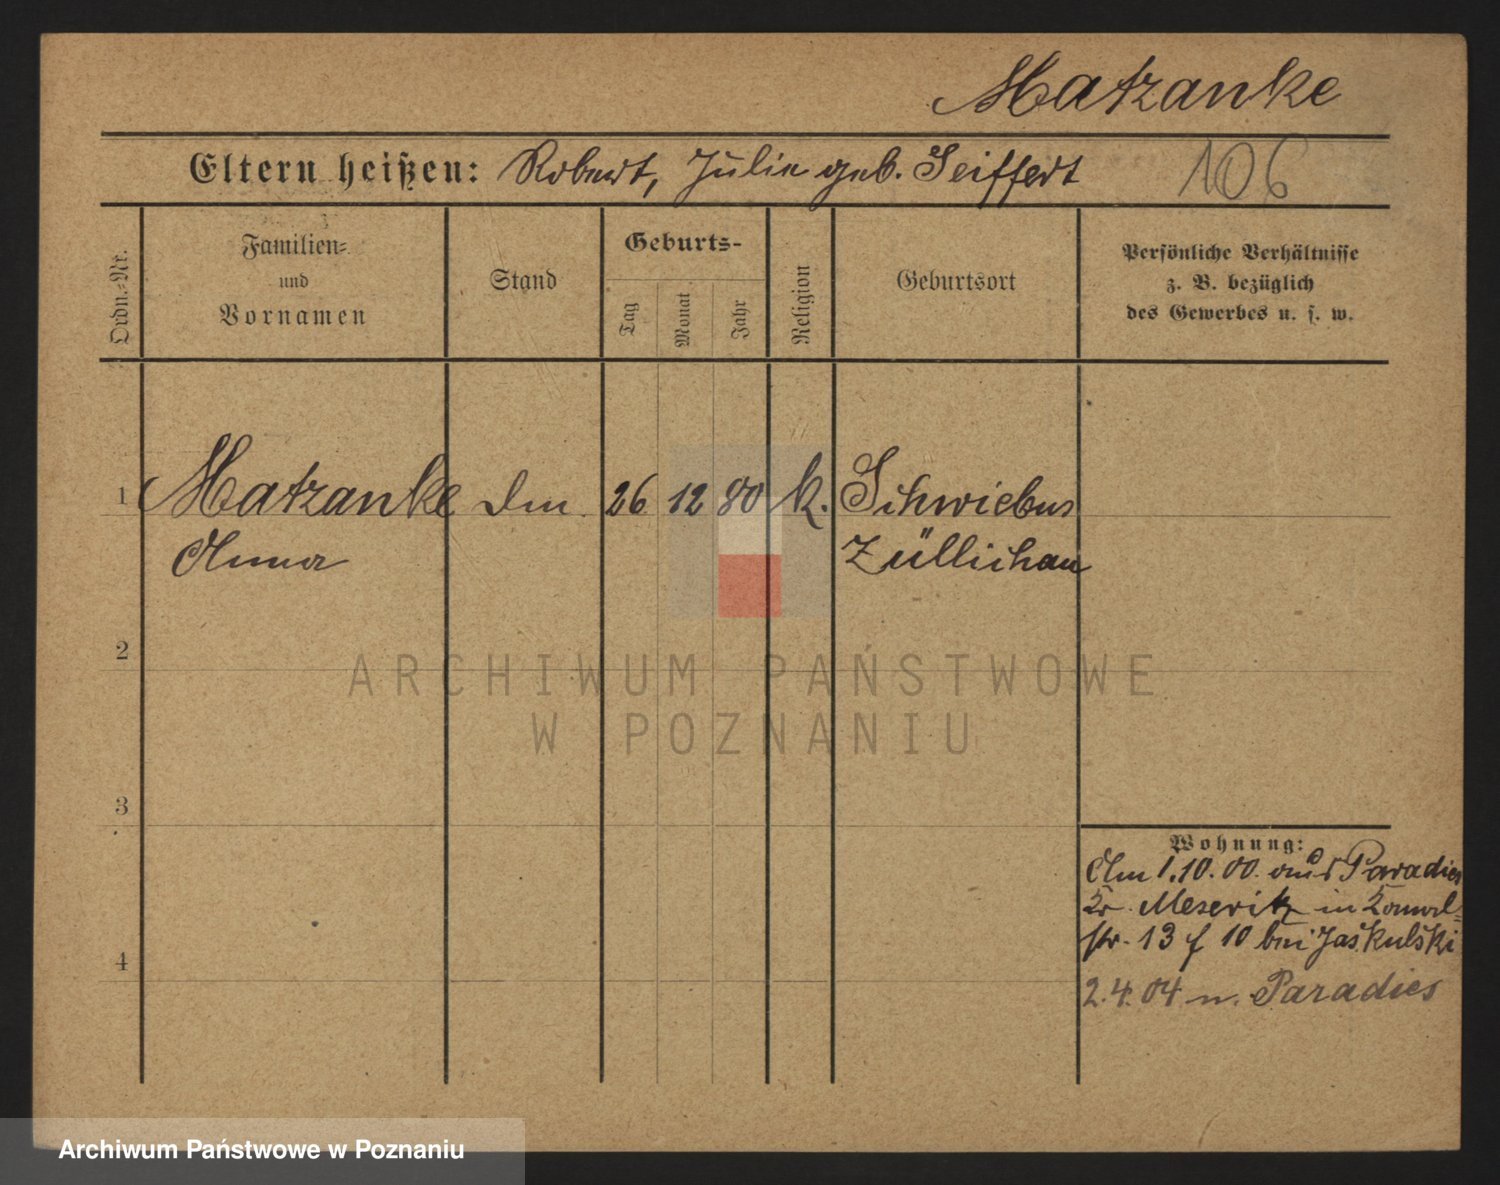 Matzanke
Eltern heißen: Robert, Julie geb. Seiffert 106
Ordn.-Nr.
Familien-
und
Vornamen
Stand
Geburts-
Tag
Monat
Jahr
Religion
Geburtsort
Persönliche Verhältnisse
z. B. bezüglich
des Gewerbes u. s. w.
1 Matzanke 26 12 80 k. Schwiebus
Anna Züllichau
2
3
4
Wohnung:
Am 1.10.00. aus Paradies
Kr. Meseritz in
str. 13 f 10 bei Jaskulski
2.4.04 n. Paradies
ARCHIWUM PAŃSTWOWE
W POZNANIU
Archiwum Państwowe w Poznaniu